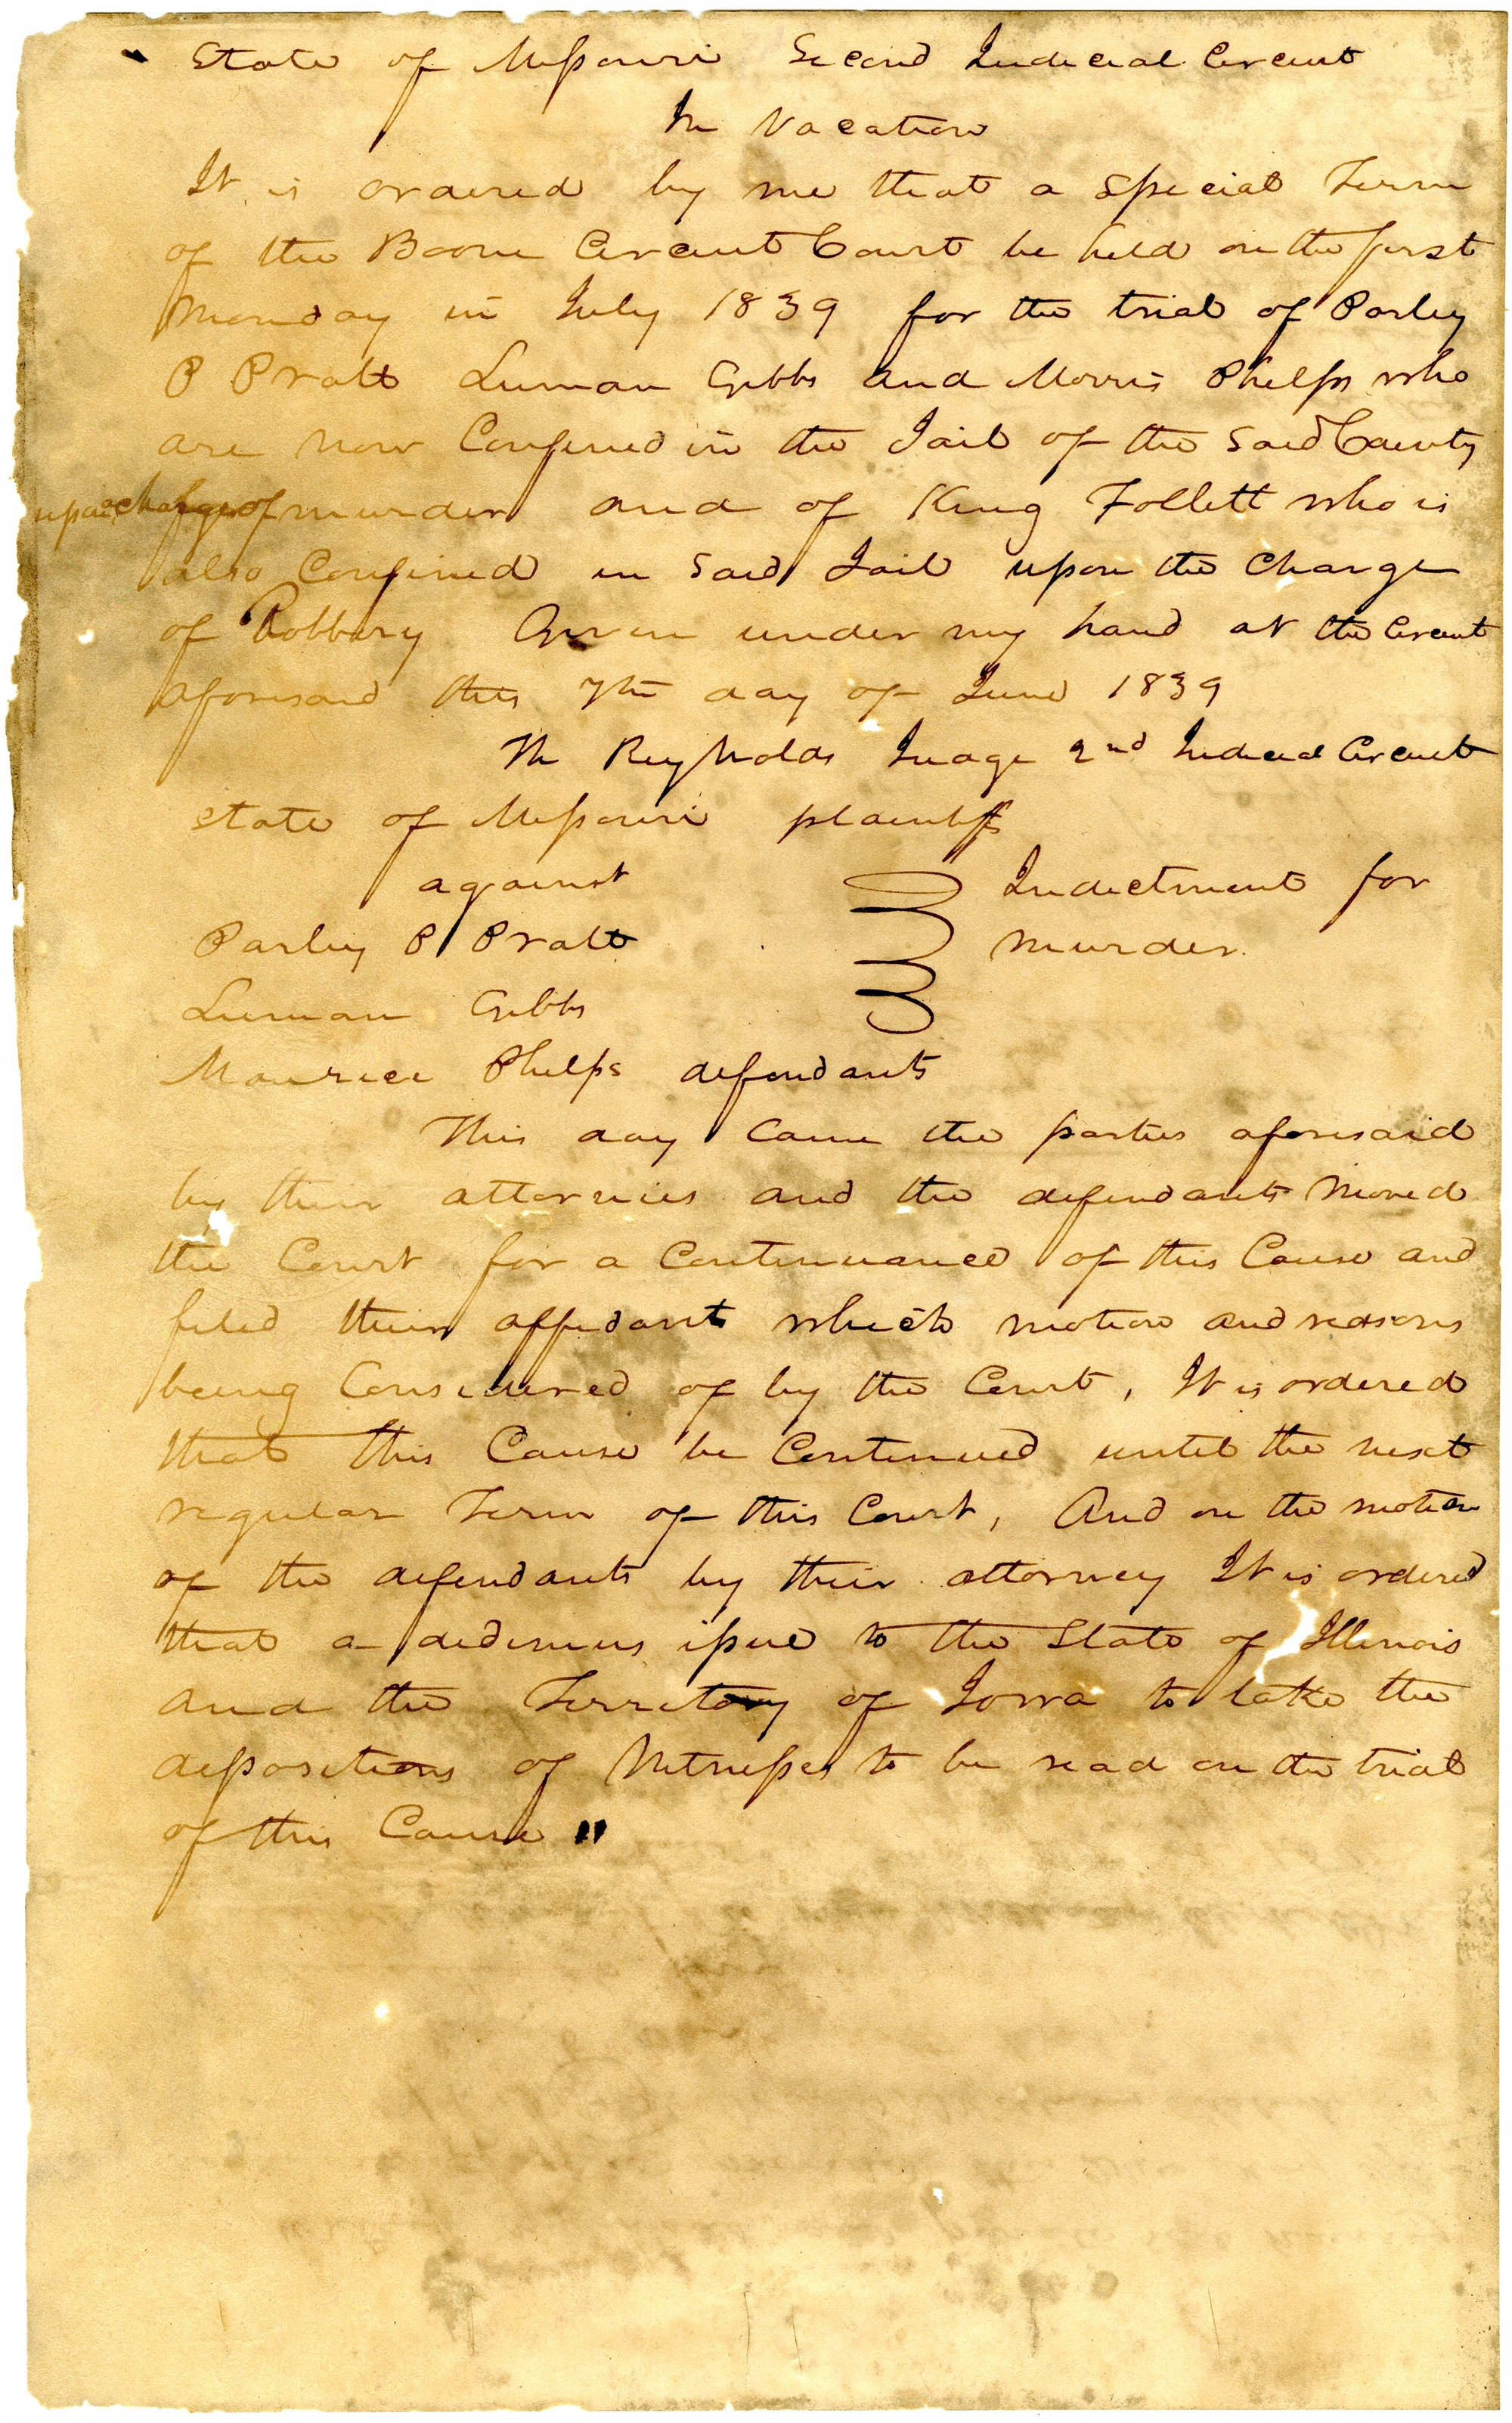 State of Missouri Second Judicial Circuit
In Vacation
It is ordered by me that a special Term
of the Boone Circuit Court be held on the first
Monday in July 1839 for the trial of Parley
P Pratt Luman Gibbs and Morris Phelps who
are now Confined in the Jail of the said County
upon charge of murder and of King Follett who is
also Confined in said Jail upon the Charge
of Robbery Given under my hand at the Circuit
aforesaid this 7th day of June 1839
Th Reynolds Judge 2nd Judicial Circuit
State of Missouri plaintiff
against Indictment for
Parley P Pratt murder.
Luman Gibbs
Maurice Phelps defendants
This day Came the parties aforesaid
by their attornies and the defendants moved
the Court for a Continuance of this Cause and
filed their affidavit which motion and reasons
being Considered of by the Court, It is ordered
that this Cause be Continued until the next
regular Term of this Court, And on the motion
of the defendants by their attorney It is ordered
that a dedimus issue to the State of Illinois
and the Territory of Iowa to take the
depositions of Witnesses to be read on the trial
of this Cause "